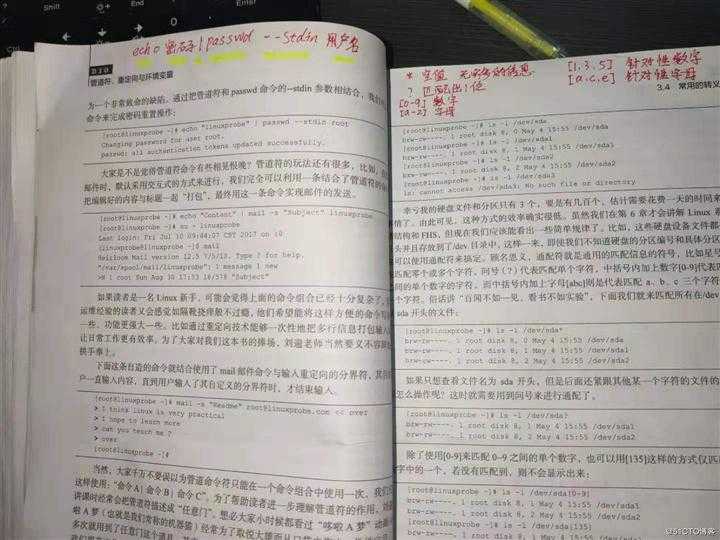 echo 密码 | passwd --stdin 用户名
管道符、重定向与环境变量
为一个非常致命的缺陷。通过把管道符和 passwd 命令的--stdin 参数相结合，我们
命令来完成密码重置操作：
[root@linuxprobe ~]# echo "linuxprobe" | passwd --stdin root
Changing password for user root.
passwd: all authentication tokens updated successfully.
大家是不是觉得管道符命令有些相见恨晚？管道符的玩法还有很多，比如，
邮件时，默认采用交互式的方式来进行，我们完全可以利用一条结合了管道符的
把编辑好的内容与标题一起"打包"，最终用这一条命令实现邮件的发送。
[root@linuxprobe ~]# echo "Content" | mail -s "Subject" linuxprobe
[root@linuxprobe ~]# su - linuxprobe
Last login: Fri Jul 10 09:44:07 CST 2017 on :0
[linuxprobe@linuxprobe ~]$ mail
Heirloom Mail version 12.5 7/5/10. Type ? for help.
"/var/spool/mail/linuxprobe": 1 message 1 new
>N 1 root Sun Aug 30 17:33 18/578 "Subject"
如果读者是一名 Linux 新手，可能会觉得上面的命令组合已经十分复杂了，
运维经验的读者又会感觉如隔靴挠痒般不过瘾，他们希望能将这样方便的命令写
一些、功能更强大一些。比如通过重定向技术能够一次性地把多行信息打包输入
让日常工作更有效率。为了大家对我们这本书的捧场，刘遄老师当然要义不容辞
拱手奉上。
下面这条自造的命令就结合使用了 mail 邮件命令与输入重定向的分界符，其目
户一直输入内容，直到用户输入了其自定义的分界符时，才结束输入。
[root@linuxprobe ~]# mail -s "Readme" root@linuxprobe.com << over
> I think linux is very practical
> I hope to learn more
> can you teach me ?
> over
[root@linuxprobe ~]#
当然，大家千万不要误以为管道命令符只能在一个命令组合中使用一次，我们
这样使用："命令 A | 命令 B | 命令 C"。为了帮助读者进一步理解管道符的作用，刘遄
讲课时经常会把管道符描述成"任意门"。想必大家小时候都看过"哆啦 A 梦"动画
啦 A 梦（也就是我们常称的机器猫）经常为了取悦大雄而从口袋
[1,3,5] 针对性数字
[a,c,e] 针对性字母
[0-9] 数字
[a-z] 字母
3.4 常用的转义
[root@linuxprobe ~]# ls -l /dev/sda
brw-rw----. 1 root disk 8, 0 May 4 15:55 /dev/sda
[root@linuxprobe ~]# ls -l /dev/sda1
brw-rw----. 1 root disk 8, 1 May 4 15:55 /dev/sda1
[root@linuxprobe ~]# ls -l /dev/sda2
brw-rw----. 1 root disk 8, 2 May 4 15:55 /dev/sda2
[root@linuxprobe ~]# ls -l /dev/sda3
ls: cannot access /dev/sda3: No such file or directory
幸亏我的硬盘文件和分区只有 3 个，要是有几百个，估计需要花费一天的时间来
情了。由此可见，这种方式的效率确实很低。虽然我们在第 6 章才会讲解 Linux
结构和 FHS，但现在我们应该能看出一些简单规律了。比如，这些硬盘设备文件都
头并且存放到了/dev 目录中，这样一来，即使我们不知道硬盘的分区编号和具体分
可以使用通配符来搞定。顾名思义，通配符就是通用的匹配信息的符号，比如星号
匹配零个或多个字符，问号（?）代表匹配单个字符，中括号内加上数字[0-9]代表
间的单个数字的字符，而中括号内加上字母[abc]则是代表匹配 a、b、c 三个字符
个字符。俗话讲"百闻不如一见，看书不如实验"，下面我们就来匹配所有在/dev
sda 开头的文件：
[root@linuxprobe ~]# ls -l /dev/sda*
brw-rw----. 1 root disk 8, 0 May 4 15:55 /dev/sda
brw-rw----. 1 root disk 8, 1 May 4 15:55 /dev/sda1
brw-rw----. 1 root disk 8, 2 May 4 15:55 /dev/sda2
如果只想查看文件名为 sda 开头，但是后面还紧跟其他某一个字符的文件的
怎么操作呢？这时就需要用到问号来进行通配了。
[root@linuxprobe ~]# ls -l /dev/sda?
brw-rw----. 1 root disk 8, 1 May 4 15:55 /dev/sda1
brw-rw----. 1 root disk 8, 2 May 4 15:55 /dev/sda2
除了使用[0-9]来匹配 0~9 之间的单个数字，也可以用[135]这样的方式仅匹
字中的一个，若没有匹配到，则不会显示出来：
[root@linuxprobe ~]# ls -l /dev/sda[0-9]
brw-rw----. 1 root disk 8, 1 May 4 15:55 /dev/sda1
brw-rw----. 1 root disk 8, 2 May 4 15:55 /dev/sda2
[root@linuxprobe ~]# ls -l /dev/sda[135]
@51CTO博客